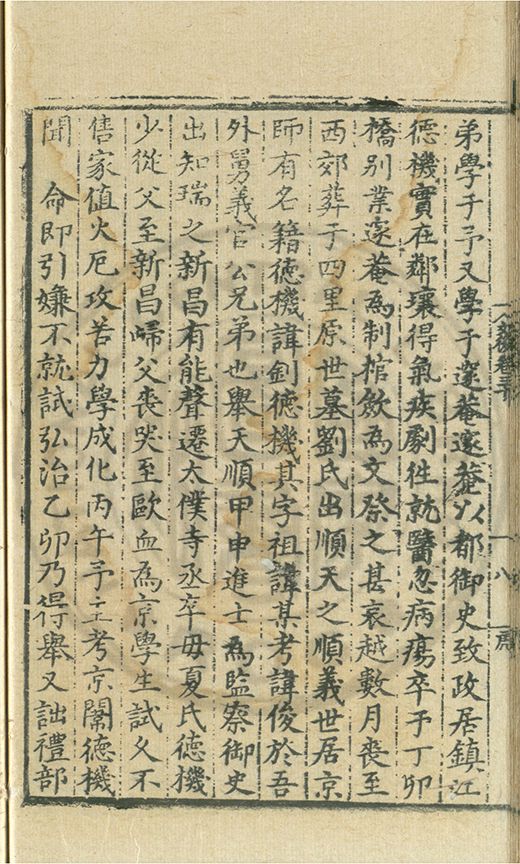 弟學于予又學于邃菴邃菴以都御史致政居鎮江
德機實在鄰壤得氣疾劇徃就醫忽病瘍卒于丁卯
橋别業邃菴為制棺斂為文祭之甚哀越數月喪至
西郊葬于四里原世墓劉氏出順天之順義世居京
師有名籍德機諱釗德機其字祖諱某考諱俊於吾
外舅義官公兄弟也舉天順甲申進士為監察御史
出知瑞之新昌有能聲遷太僕寺丞卒毋夏氏德機
少從父至新昌歸父喪哭至歐血為京學生試久不
售家值火厄攻苦力學成化丙午予主考京闈德機
聞 命即引嫌不就試弘治乙卯乃得舉又詘禮部
八